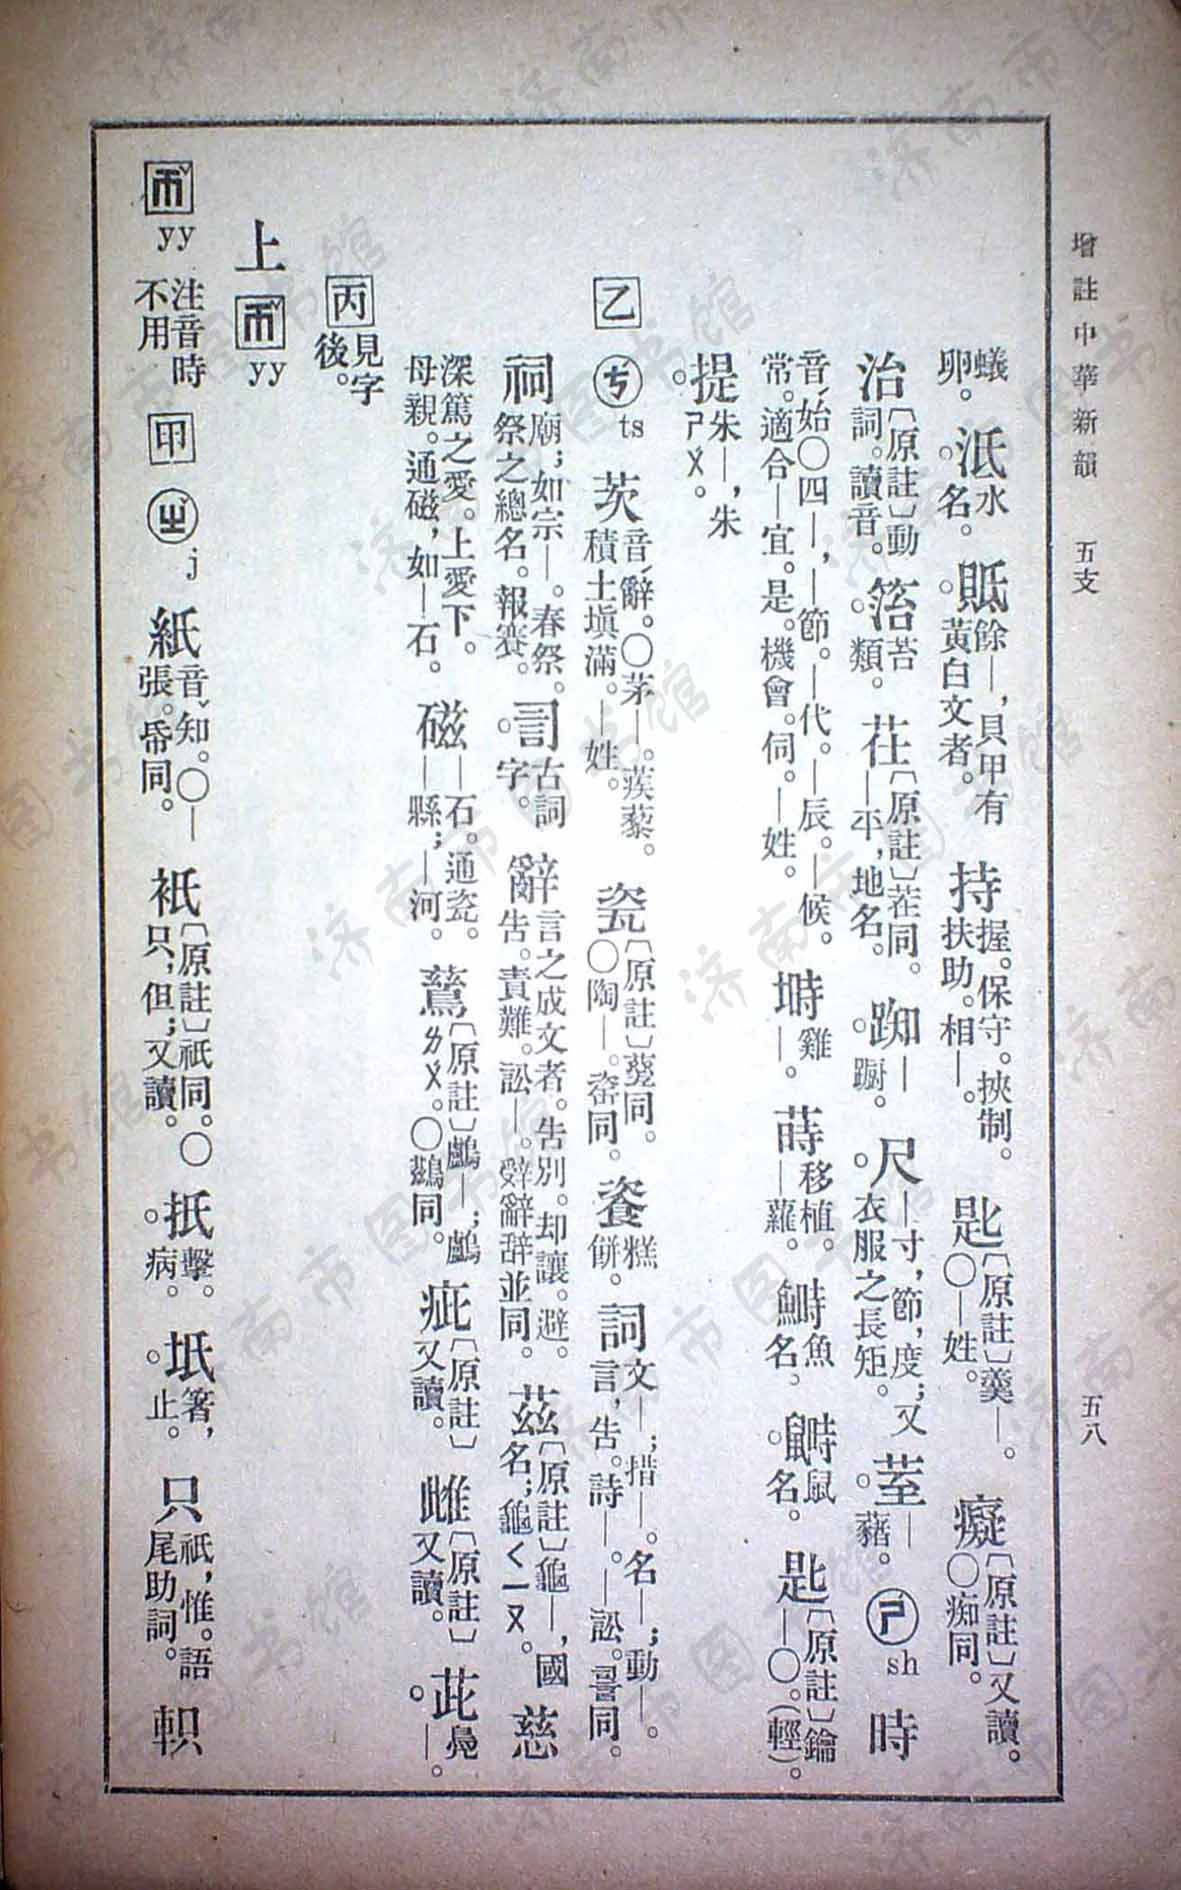 增註中華新韻　五支　五八
蟻卵。泜水名。貾餘—，貝甲有黃白文者。持握。保守。挾制。扶助。相—。匙〔原註〕羹—。〇—姓。癡〔原註〕又讀。〇痴同。
治〔原註〕動詞。讀音。箈苔類。茌〔原註〕茬同。—平，地名。踟—躕。尺—寸，節，度；又衣服之長矩。荎—藸。ㄕ sh 時
音ˊ始〇四—，—節。—代。—辰。—候。常。適合—宜。是。機會。伺。—姓。塒雞—。蒔移植。—蘿。鰣魚名。鼭鼠名。匙〔原註〕鑰—〇。（輕）。
提朱—，朱ㄕㄨ。
乙 ㄘ ts 茨音ˊ辭。〇茅—。蒺藜。積土塡滿。—姓。瓷〔原註〕甆同。〇陶—。瓷同。餈糕餅。詞文—；措—。名—；動—。言，告。詩—。—訟。䛐同。
祠廟；如宗—。春祭。祭之總名。報賽。䛐古詞字。辭言之成文者。告別。却讓。避。告。責難。訟—。辤辭辞並同。茲〔原註〕龜—，國名；龜ㄑㄧㄡ。慈
深篤之愛。上愛下。母親。通磁，如—石。磁—石。通瓷。—縣；—河。鶿〔原註〕鸕—；鸕ㄌㄨ。〇鷀同。疵〔原註〕又讀。雌〔原註〕又讀。茈鳧—。
丙見字後。
上 帀ˇ yy
帀ˇ yy 注音時不用 甲 ㄓ j 紙音ˇ知。〇—張。帋同。衹〔原註〕祇同。〇只，但；又讀。抵擊。疧病。坻箸，止。只祇，惟。語尾助詞。軹